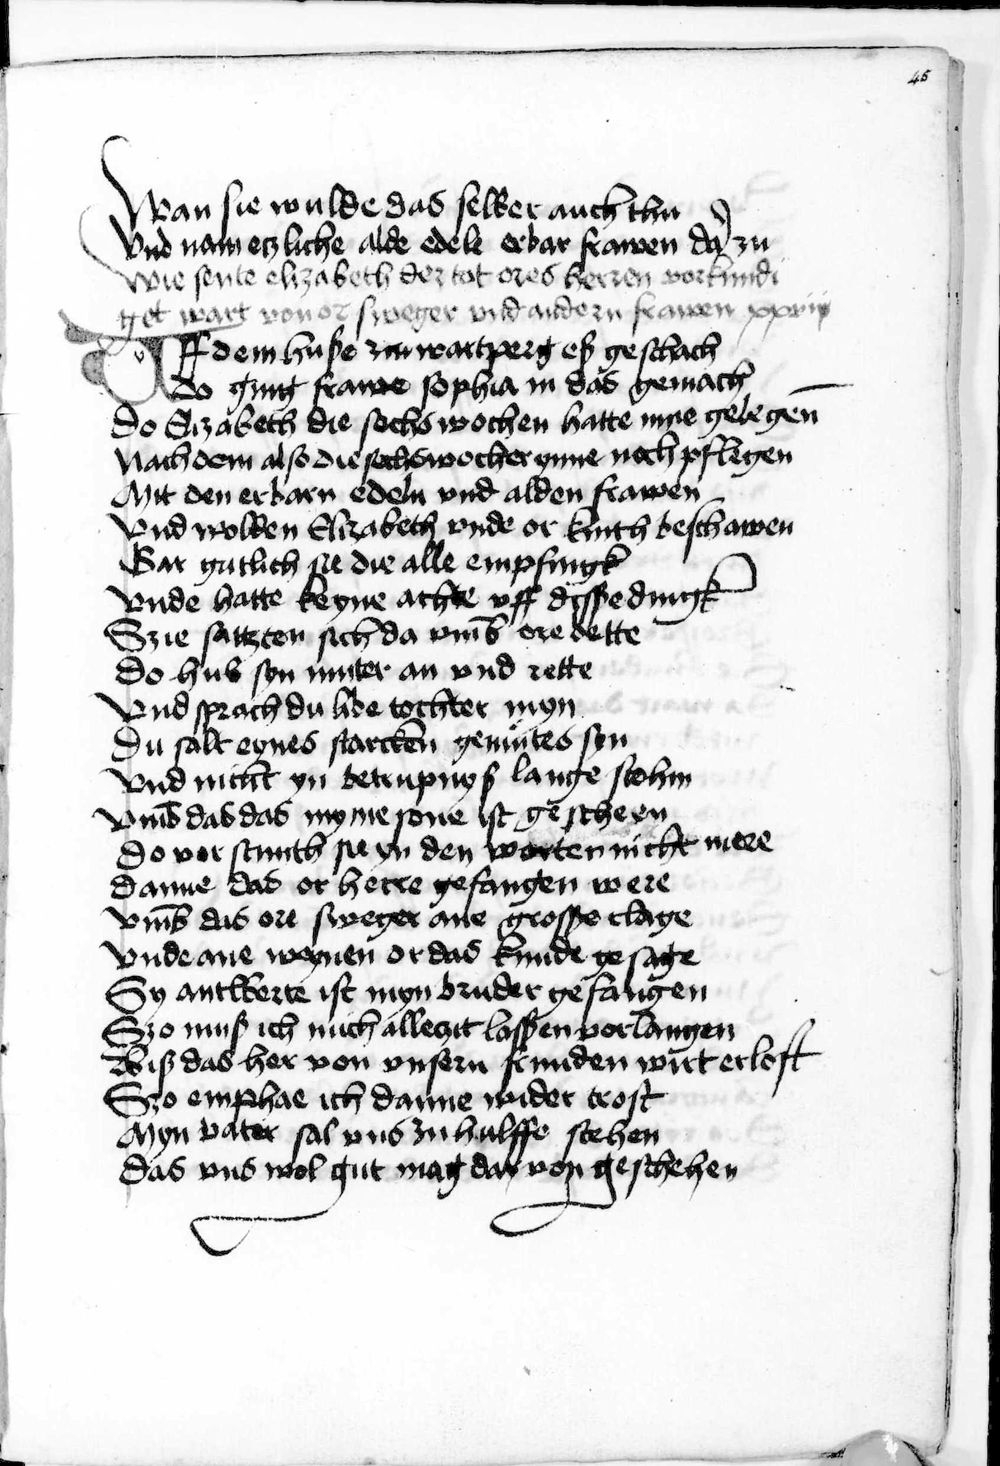 45
Wan sie wulde das selber auch thu
Vnd nam etzliche alde edele erbar frawen da zu
Wie sente elizabeth der tot ores herren vorkundi
get wart von or sweger vnd andern frawen xxviij
Vff dem huße zcu wartperg eß geschach
Do ging frawe sophia in das gemach
Do Elizabeth die sechs wochen hatte inne gelegen
Nach dem also die sechswocherynne noch pflegen
Mit den erbarn edeln vnd alden frawen
Vnd wolden Elizabeth vnde or kinth beschawen
Gar gutlich sie die alle empfingk
Vnde hatte keyne achte vff dysse dingk
Szie satzten sich da vmb ore bette
Do hub syn muter an vnd rette
Vnd sprach du libe tochter myn
Du salt eynes starcken gemutes syn
Vnd nicht yn betrupnyß lange stehin
Vmb das das myme sone ist gescheen
Do vorstunth sie yn den worten nicht mere
Danne das or herre gefangen were
Vmb das ore sweger ane grosse clage
Vnde ane weynen or das kunde gesage
Sy antwerte ist myn bruder gefangen
Szo muß ich mich allezit lassen vorlangen
Biß das her von vnsern frunden wirt erlost
Szo emphae ich danne wider trost
Myn vater sal vns zu hulffe stehen
Das vns wol gut mag dar von geschehen